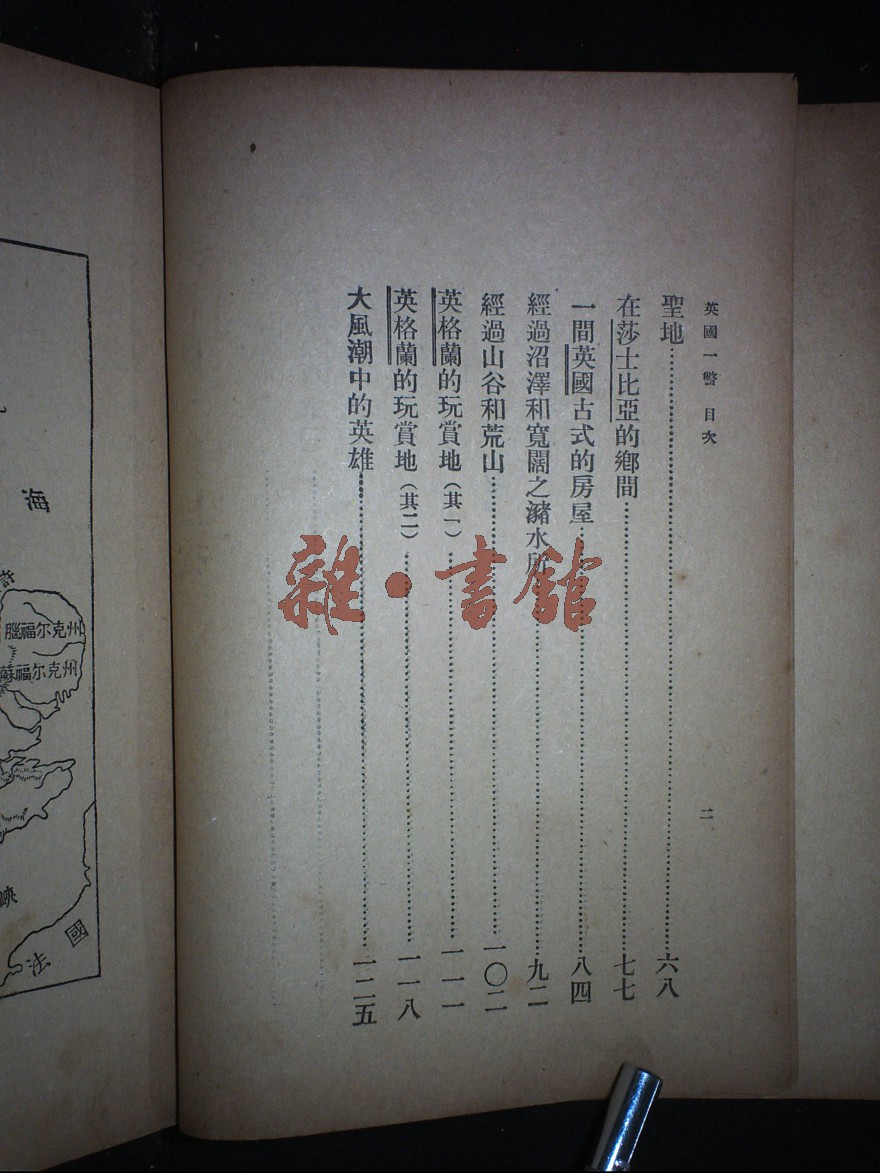 英國一瞥 目次
二
聖地……六八
在莎士比亞的鄉間……七七
一間英國古式的房屋……八四
經過沼澤和寬闊之瀦水所……九二
經過山谷和荒山……一〇二
英格蘭的玩賞地（其一）……一一一
英格蘭的玩賞地（其二）……一一八
大風潮中的英雄……一二五
雜·書館
海
腦福尔克州
蘇福尔克州
峽
法國